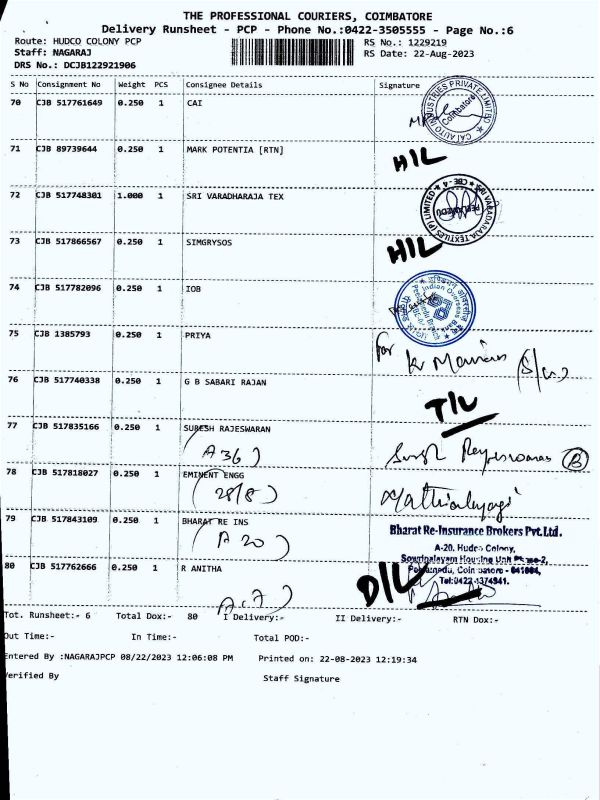 THE PROFESSIONAL COURIERS, COIMBATORE
Delivery Runsheet - PCP - Phone No.:0422-3505555 - Page No.:6
Route: HUDCO COLONY PCP RS No.: 1229219
Staff: NAGARAJ RS Date: 22-Aug-2023
DRS No.: DCJB122921906
S No Consignment No Weight PCS Consignee Details Signature
70 CJB 517761649 0.250 1 CAI
CAI AUTO INDUSTRIES PRIVATE LIMITED
Coimbatore
71 CJB 89739644 0.250 1 MARK POTENTIA [RTN] HIL
72 CJB 517748301 1.000 1 SRI VARADHARAJA TEX
SRI VARADARAJA TEXTILES (P) LIMITED
CBE-4
73 CJB 517866567 0.250 1 SIMGRYSOS HIL
74 CJB 517782096 0.250 1 IOB
Indian Overseas Bank
75 CJB 1385793 0.250 1 PRIYA for K
76 CJB 517740338 0.250 1 G B SABARI RAJAN T/L
77 CJB 517835166 0.250 1 SURESH RAJESWARAN
A 36) B
78 CJB 517818027 0.250 1 EMINENT ENGG
(28/8)
79 CJB 517843109 0.250 1 BHARAT RE INS
(A 20)
Bharat Re-Insurance Brokers Pvt.Ltd.
A-20. Hudco Colony,
Sowripalayam Housing Unit Phase-2,
Peelamedu, Coimbatore - 641004,
Tel:0422-4374941.
80 CJB 517762666 0.250 1 R ANITHA D/L
A.7)
Tot. Runsheet:- 6 Total Dox:- 80 I Delivery:- II Delivery:- RTN Dox:-
Out Time:- In Time:- Total POD:-
Entered By :NAGARAJPCP 08/22/2023 12:06:08 PM Printed on: 22-08-2023 12:19:34
Verified By Staff Signature